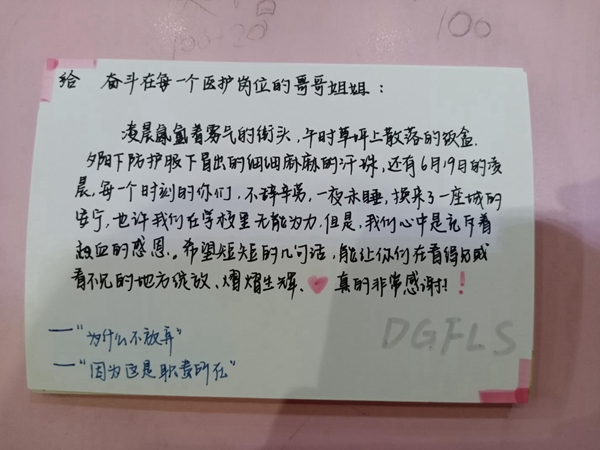 100+20
100
给 奋斗在每一个医护岗位的哥哥姐姐：
凌晨氤氲着雾气的街头，午时草坪上散落的饭盒.
夕阳下防护服下冒出的细细麻麻的汗珠，还有6月19日的凌
晨，每一个时刻的你们，不辞辛劳，一夜未睡，换来了一座城的
安宁，也许我们在学校里无能为力，但是，我们心中是充斥着
热血的感恩。希望短短的几句话，能让你们在看得见或
看不见的地方绽放、熠熠生辉、♥ 真的非常感谢！！
DGFLS
——“为什么不放弃”
——“因为这是职责所在”